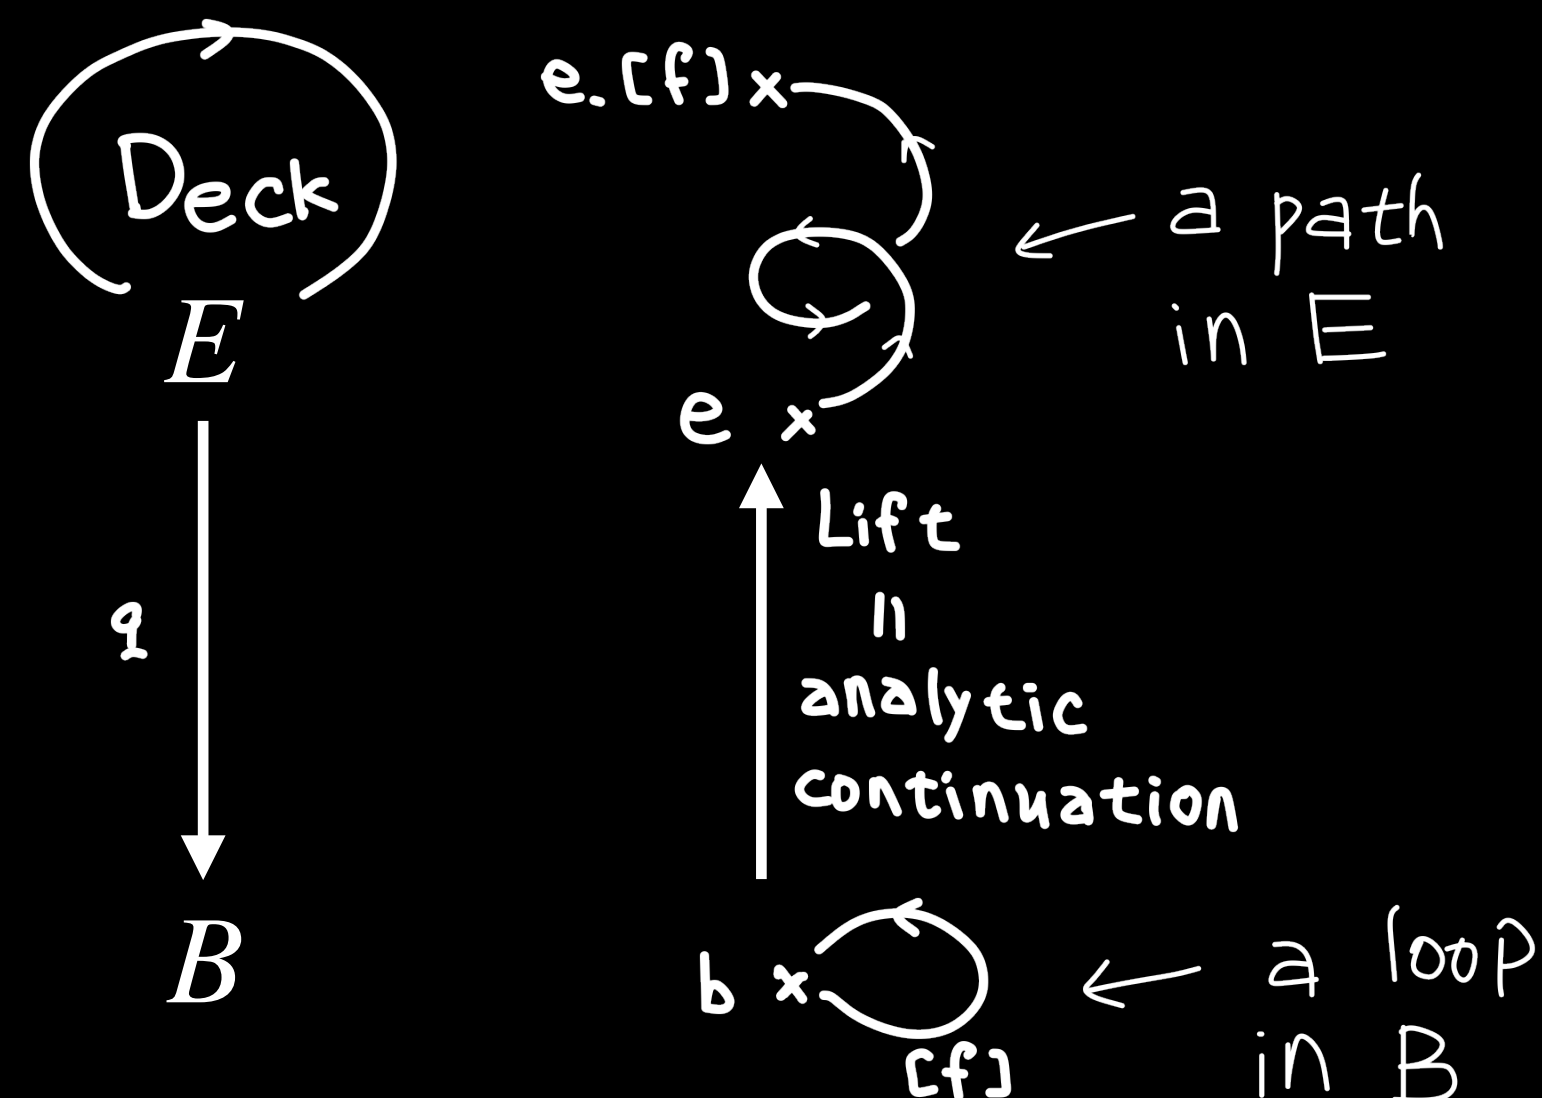 Deck
E
q
B
e.[f] x
a path
in E
e x
Lift
=
analytic
continuation
b x
[f]
a loop
in B